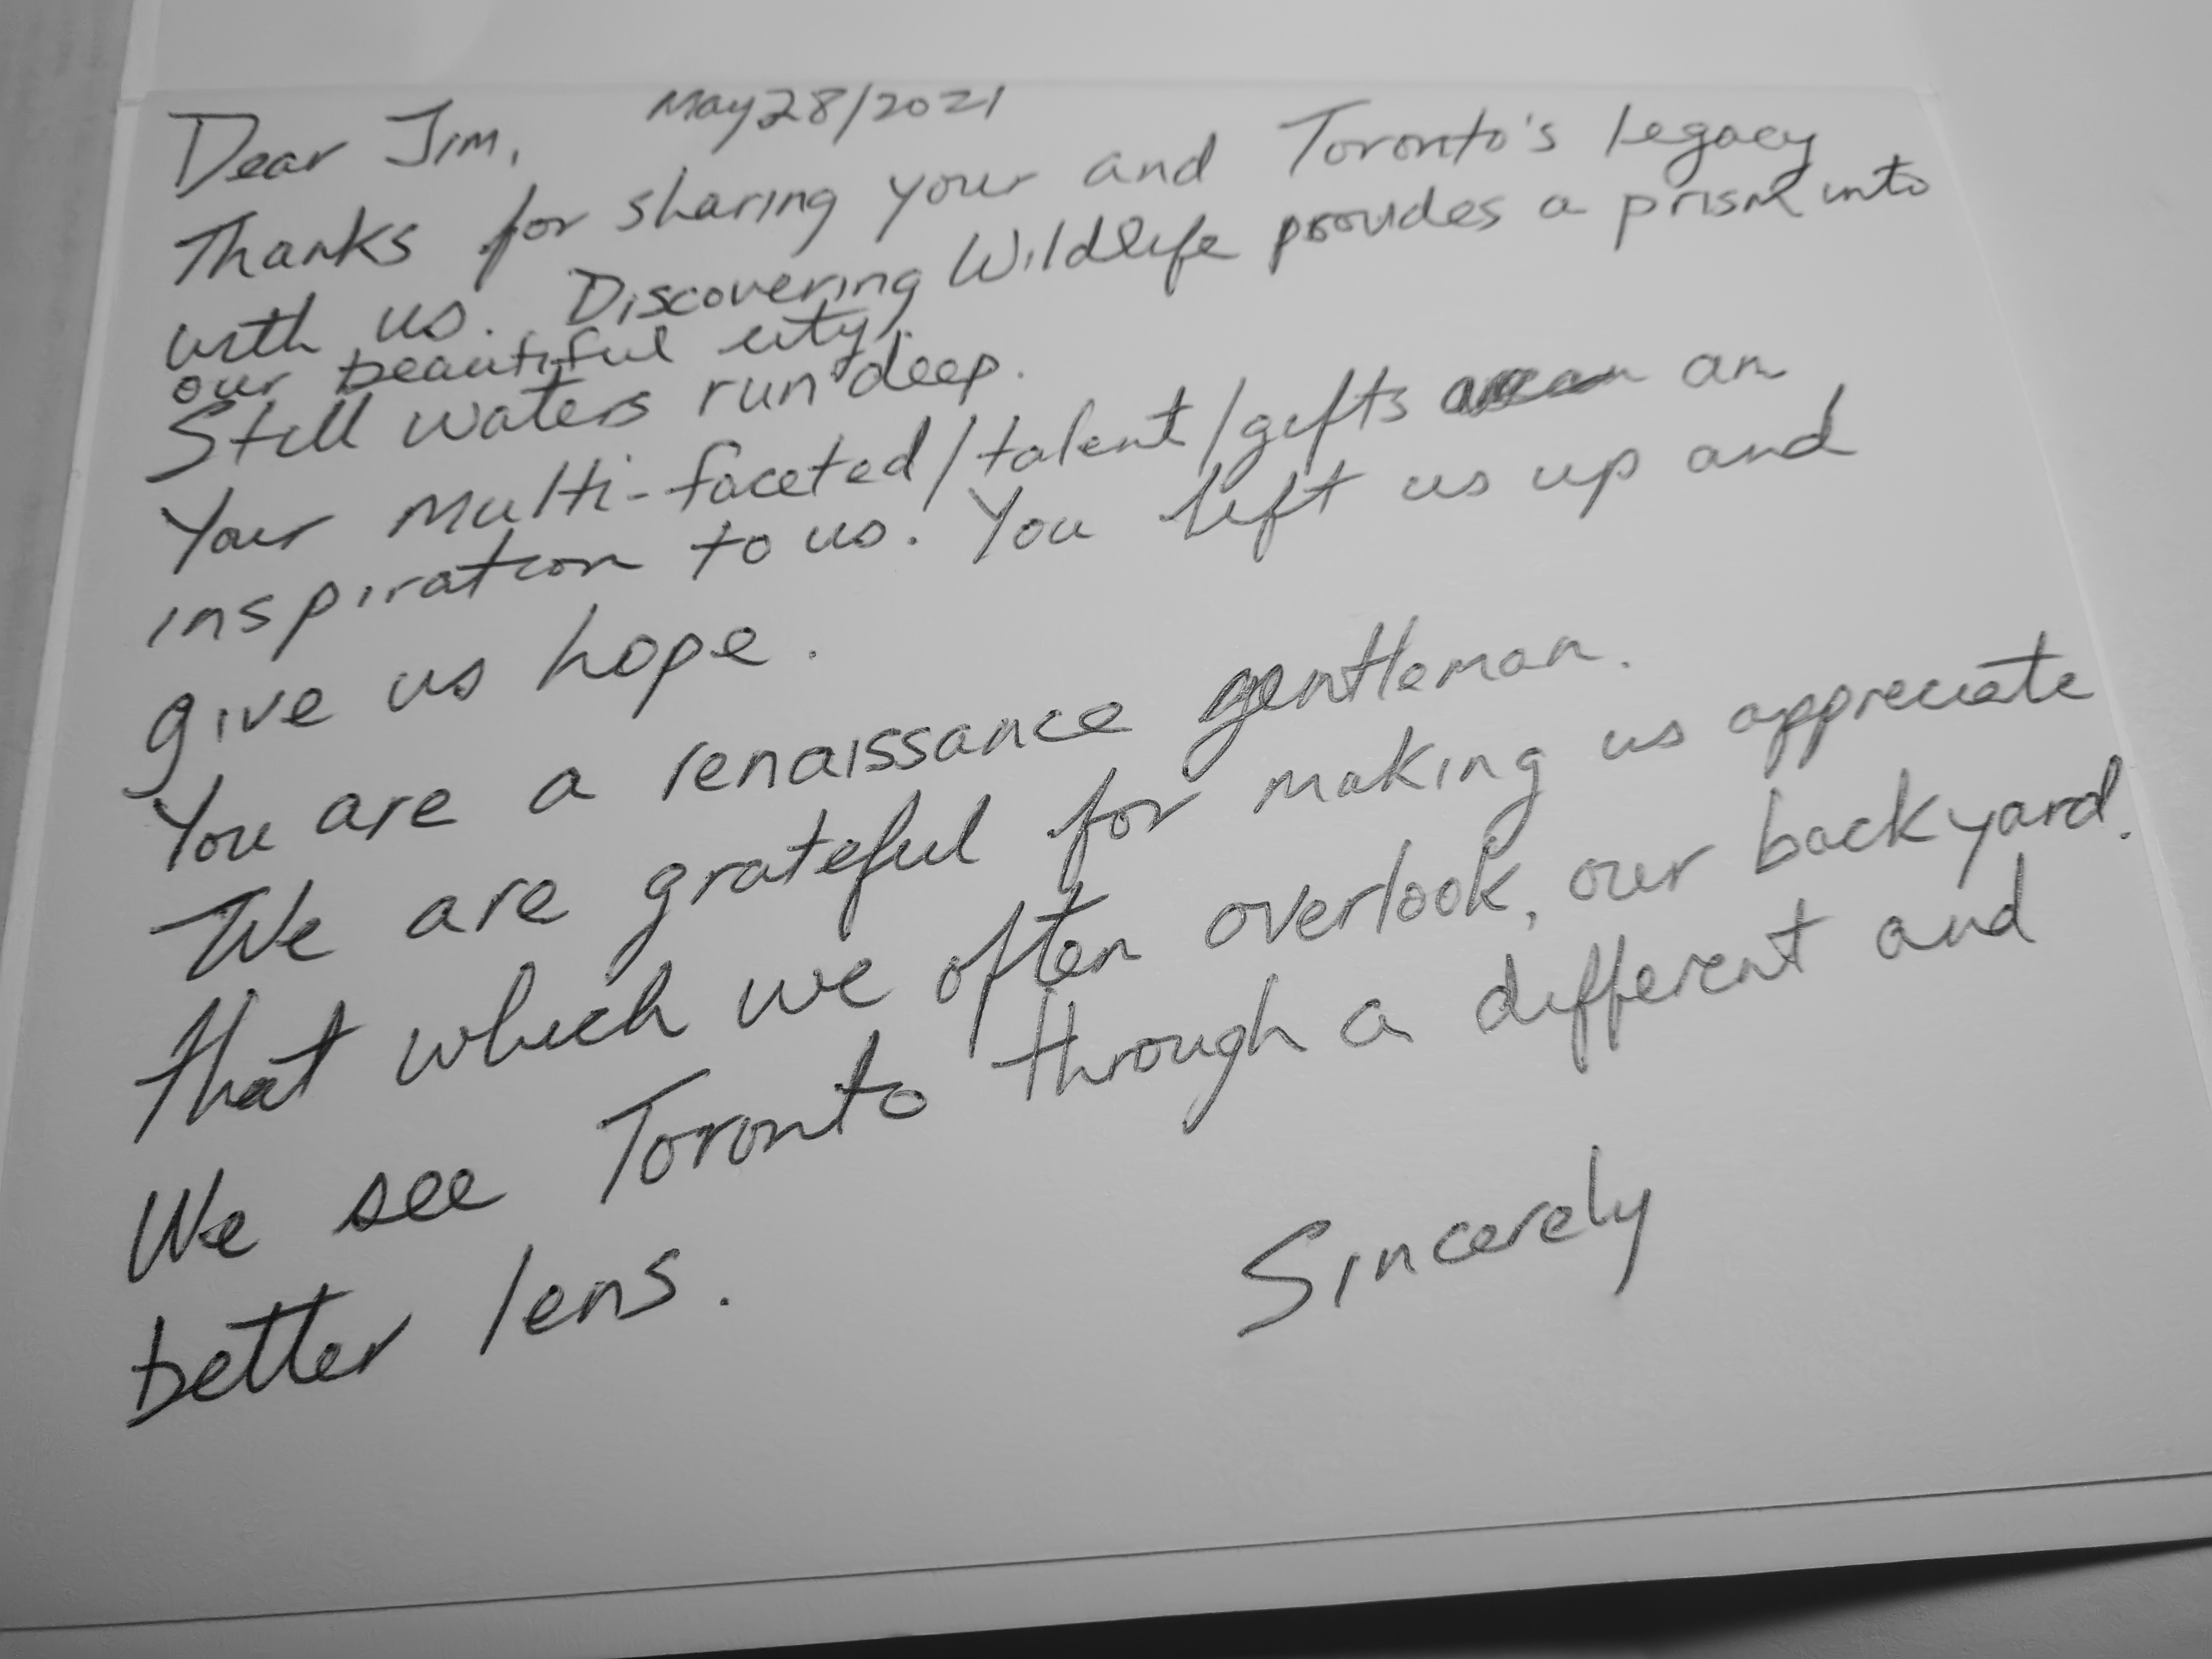 May 28/2021
Dear Jim,
Thanks for sharing your and Toronto's legacy
with us. Discovering Wildlife provides a prism into
our beautiful city.
Still waters run deep.
Your multi-faceted/talent/gifts an
inspiration to us. You lift us up and
give us hope.
You are a renaissance gentleman.
We are grateful for making us appreciate
that which we often overlook, our backyard.
We see Toronto through a different and
better lens.
Sincerely